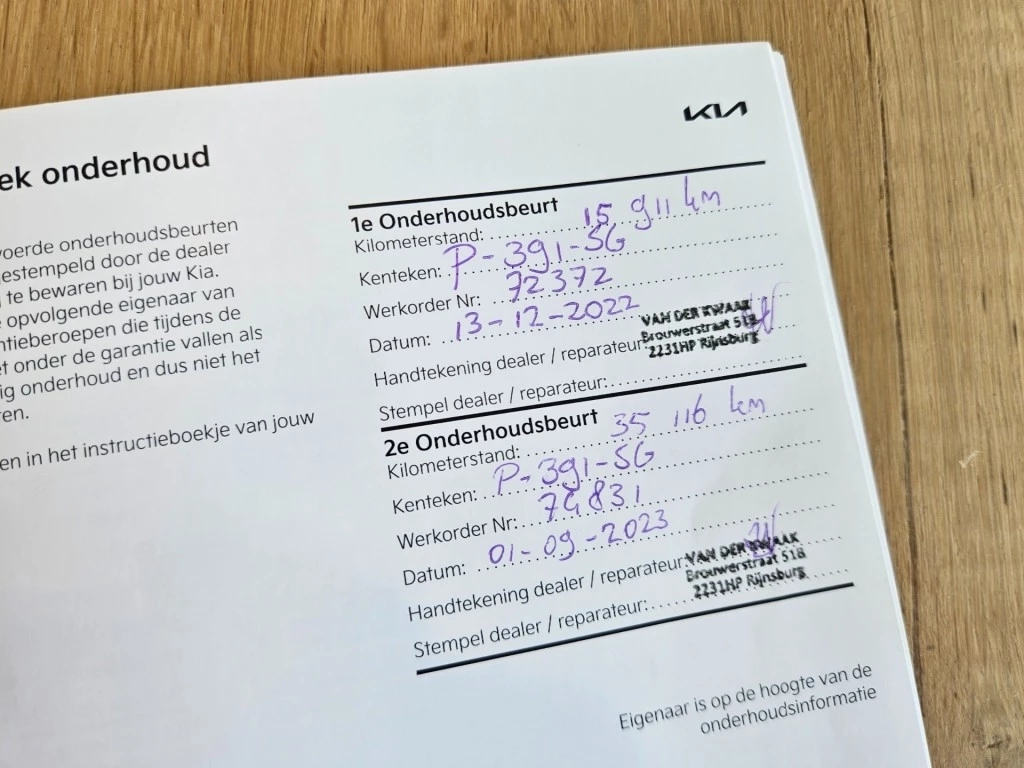 KIA
ek onderhoud
voerde onderhoudsbeurten
estempeld door de dealer
te bewaren bij jouw Kia.
opvolgende eigenaar van
ntieberoepen die tijdens de
t onder de garantie vallen als
ig onderhoud en dus niet het
ren.
en in het instructieboekje van jouw
1e Onderhoudsbeurt
Kilometerstand: 15 911 km
Kenteken: P-391-SG
Werkorder Nr: 72372
Datum: 13-12-2022
Handtekening dealer / reparateur:
VAN DER KWAAK
Brouwerstraat 51B
2231HP Rijnsburg
Stempel dealer / reparateur:
2e Onderhoudsbeurt
Kilometerstand: 35 116 km
Kenteken: P-391-SG
Werkorder Nr: 74831
Datum: 01-09-2023
Handtekening dealer / reparateur:
VAN DER KWAAK
Brouwerstraat 51B
2231HP Rijnsburg
Stempel dealer / reparateur:
Eigenaar is op de hoogte van de
onderhoudsinformatie